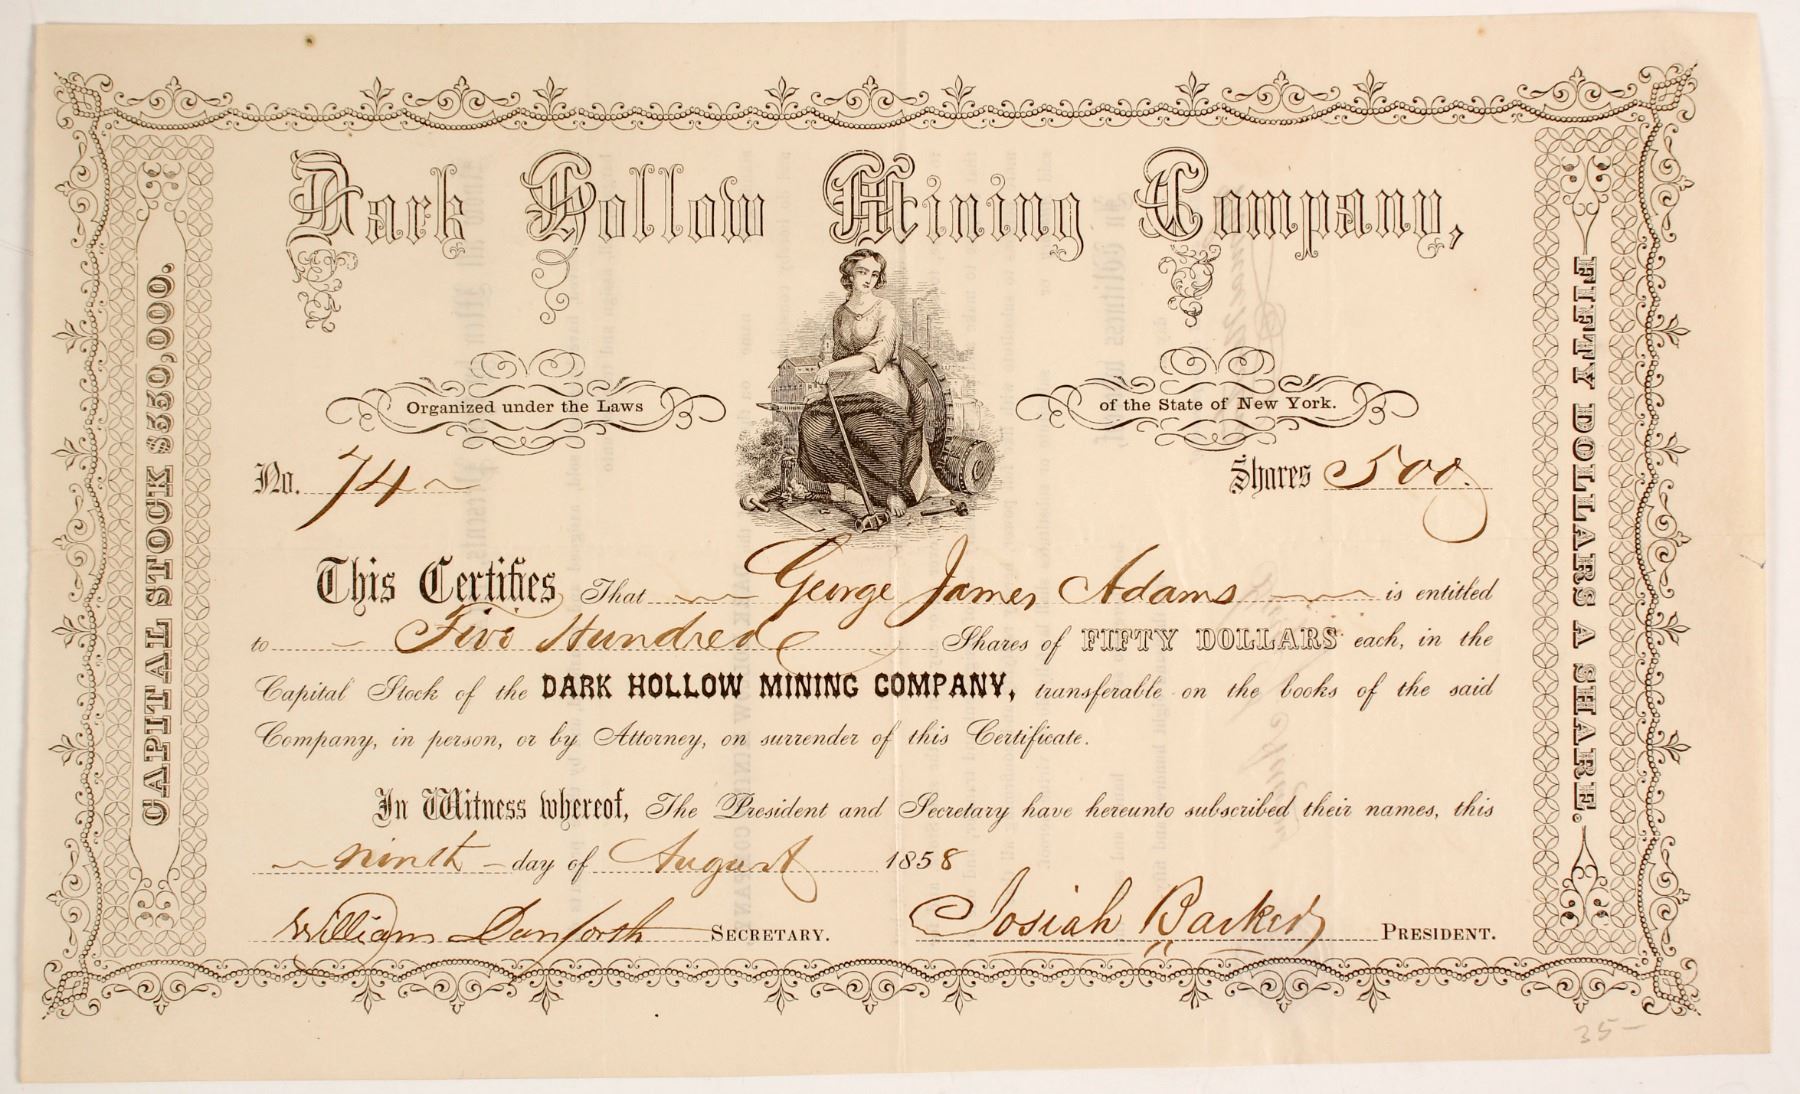 Dark Hollow Mining Company,
Organized under the Laws of the State of New York.
No. 74
Shares 500
This Certifies That George James Adams is entitled
to Five Hundred Shares of FIFTY DOLLARS each, in the
Capital Stock of the DARK HOLLOW MINING COMPANY, transferable on the books of the said
Company, in person, or by Attorney, on surrender of this Certificate.
In Witness whereof, The President and Secretary have hereunto subscribed their names, this
ninth day of August 1858
William Danforth SECRETARY.
Josiah Barker PRESIDENT.
CAPITAL STOCK $550,000.
FIFTY DOLLARS A SHARE.
35-